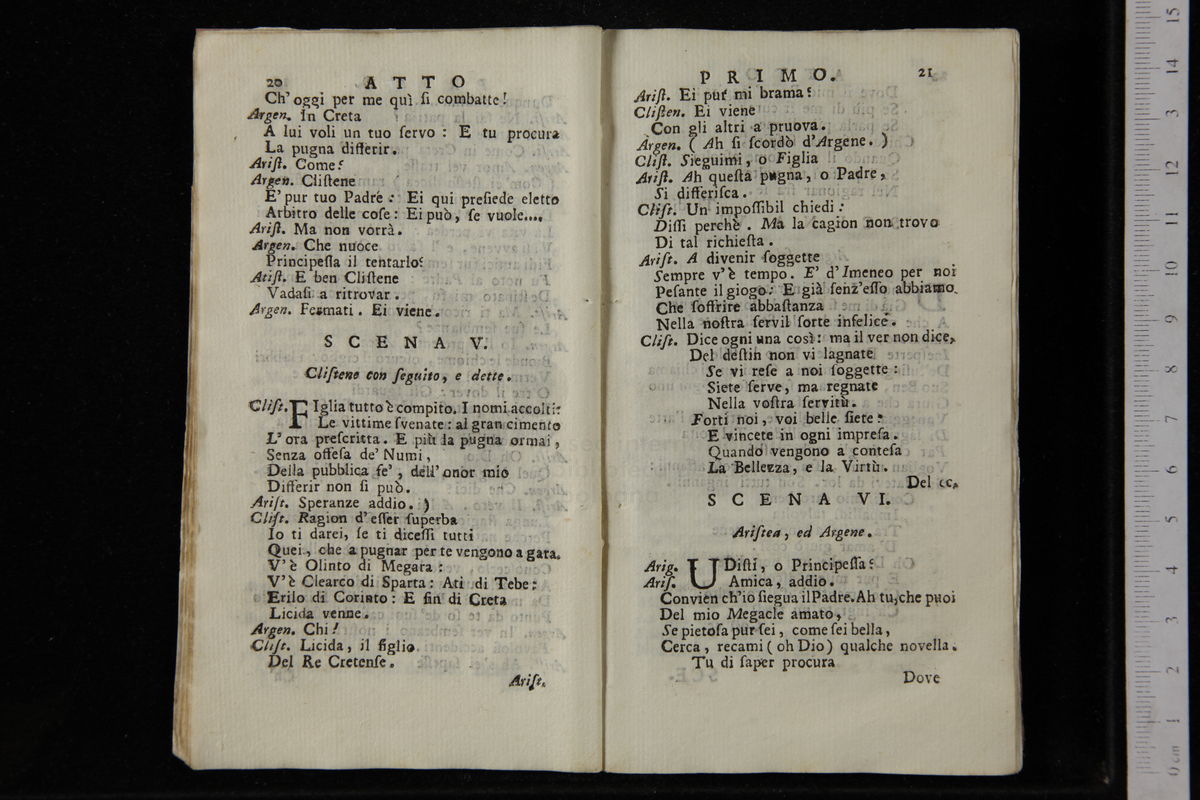 20 ATTO
Ch'oggi per me quì ſi combatte!
Argen. In Creta
A lui voli un tuo ſervo : E tu procura
La pugna differir.
Ariſt. Come?
Argen. Cliſtene
E' pur tuo Padre : Ei qui preſiede eletto
Arbitro delle coſe : Ei può, ſe vuole....
Ariſt. Ma non vorrà.
Argen. Che nuoce
Principeſſa il tentarlo?
Atiſt. E ben Cliſtene
Vadaſi a ritrovar.
Argen. Fermati. Ei viene.
SCENA V.
Cliſtene con ſeguito, e dette.
Cliſt. FIglia tutto è compito. I nomi accolti:
Le vittime ſvenate : al gran cimento
L' ora preſcritta. E più la pugna ormai,
Senza offeſa de' Numi,
Della pubblica fe', dell' onor mio
Differir non ſi può.
Ariſt. Speranze addio. )
Cliſt. Ragion d' eſſer ſuperba
Io ti darei, ſe ti diceſſi tutti
Quei, che a pugnar per te vengono a gara.
V' è Olinto di Megara :
V' è Clearco di Sparta : Ati di Tebe :
Erilo di Corinto : E fin di Creta
Licida venne.
Argen. Chi!
Cliſt. Licida, il figlio
Del Re Cretenſe.
Ariſt.
PRIMO. 21
Ariſt. Ei pur mi brama?
Cliſten. Ei viene
Con gli altri a pruova.
Argen. ( Ah ſi ſcordò d'Argene. )
Cliſt. Sieguimi, o Figlia
Ariſt. Ah queſta pugna, o Padre,
Si differiſca.
Cliſt. Un impoſſibil chiedi :
Diſſi perchè. Ma la cagion non trovo
Di tal richieſta.
Ariſt. A divenir ſoggette
Sempre v' è tempo. E' d' Imeneo per noi
Peſante il giogo : E già ſenz' eſſo abbiamo
Che ſoffrire abbaſtanza
Nella noſtra ſervil ſorte infelice.
Cliſt. Dice ogni una così : ma il ver non dice,
Del deſtin non vi lagnate
Se vi reſe a noi ſoggette :
Siete ſerve, ma regnate
Nella voſtra ſervitù.
Forti noi, voi belle ſiete :
E vincete in ogni impreſa.
Quando vengono a conteſa
La Bellezza, e la Virtù.
Del cc.
SCENA VI.
Ariſtea, ed Argene.
Arig. UDiſti, o Principeſſa?
Ariſ. Amica, addio.
Convien ch'io ſiegua il Padre. Ah tu, che puoi
Del mio Megacle amato,
Se pietoſa pur ſei, come ſei bella,
Cerca, recami ( oh Dio ) qualche novella.
Tu di ſaper procura
Dove